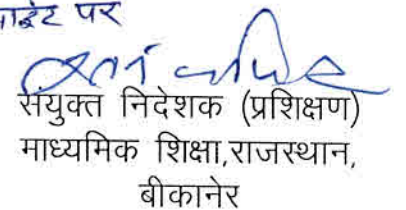 पर
संयुक्त निदेशक (प्रशिक्षण)
माध्यमिक शिक्षा,राजस्थान,
बीकानेर